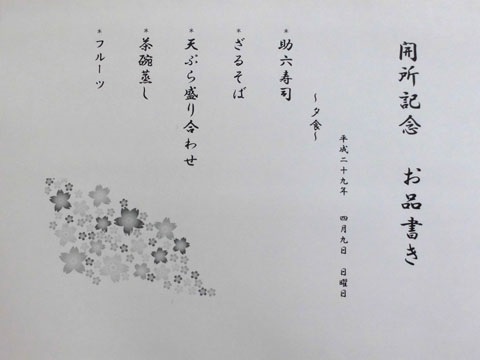 開所記念　お品書き
平成二十九年　四月九日　日曜日
～夕食～
＊助六寿司
＊ざるそば
＊天ぷら盛り合わせ
＊茶碗蒸し
＊フルーツ